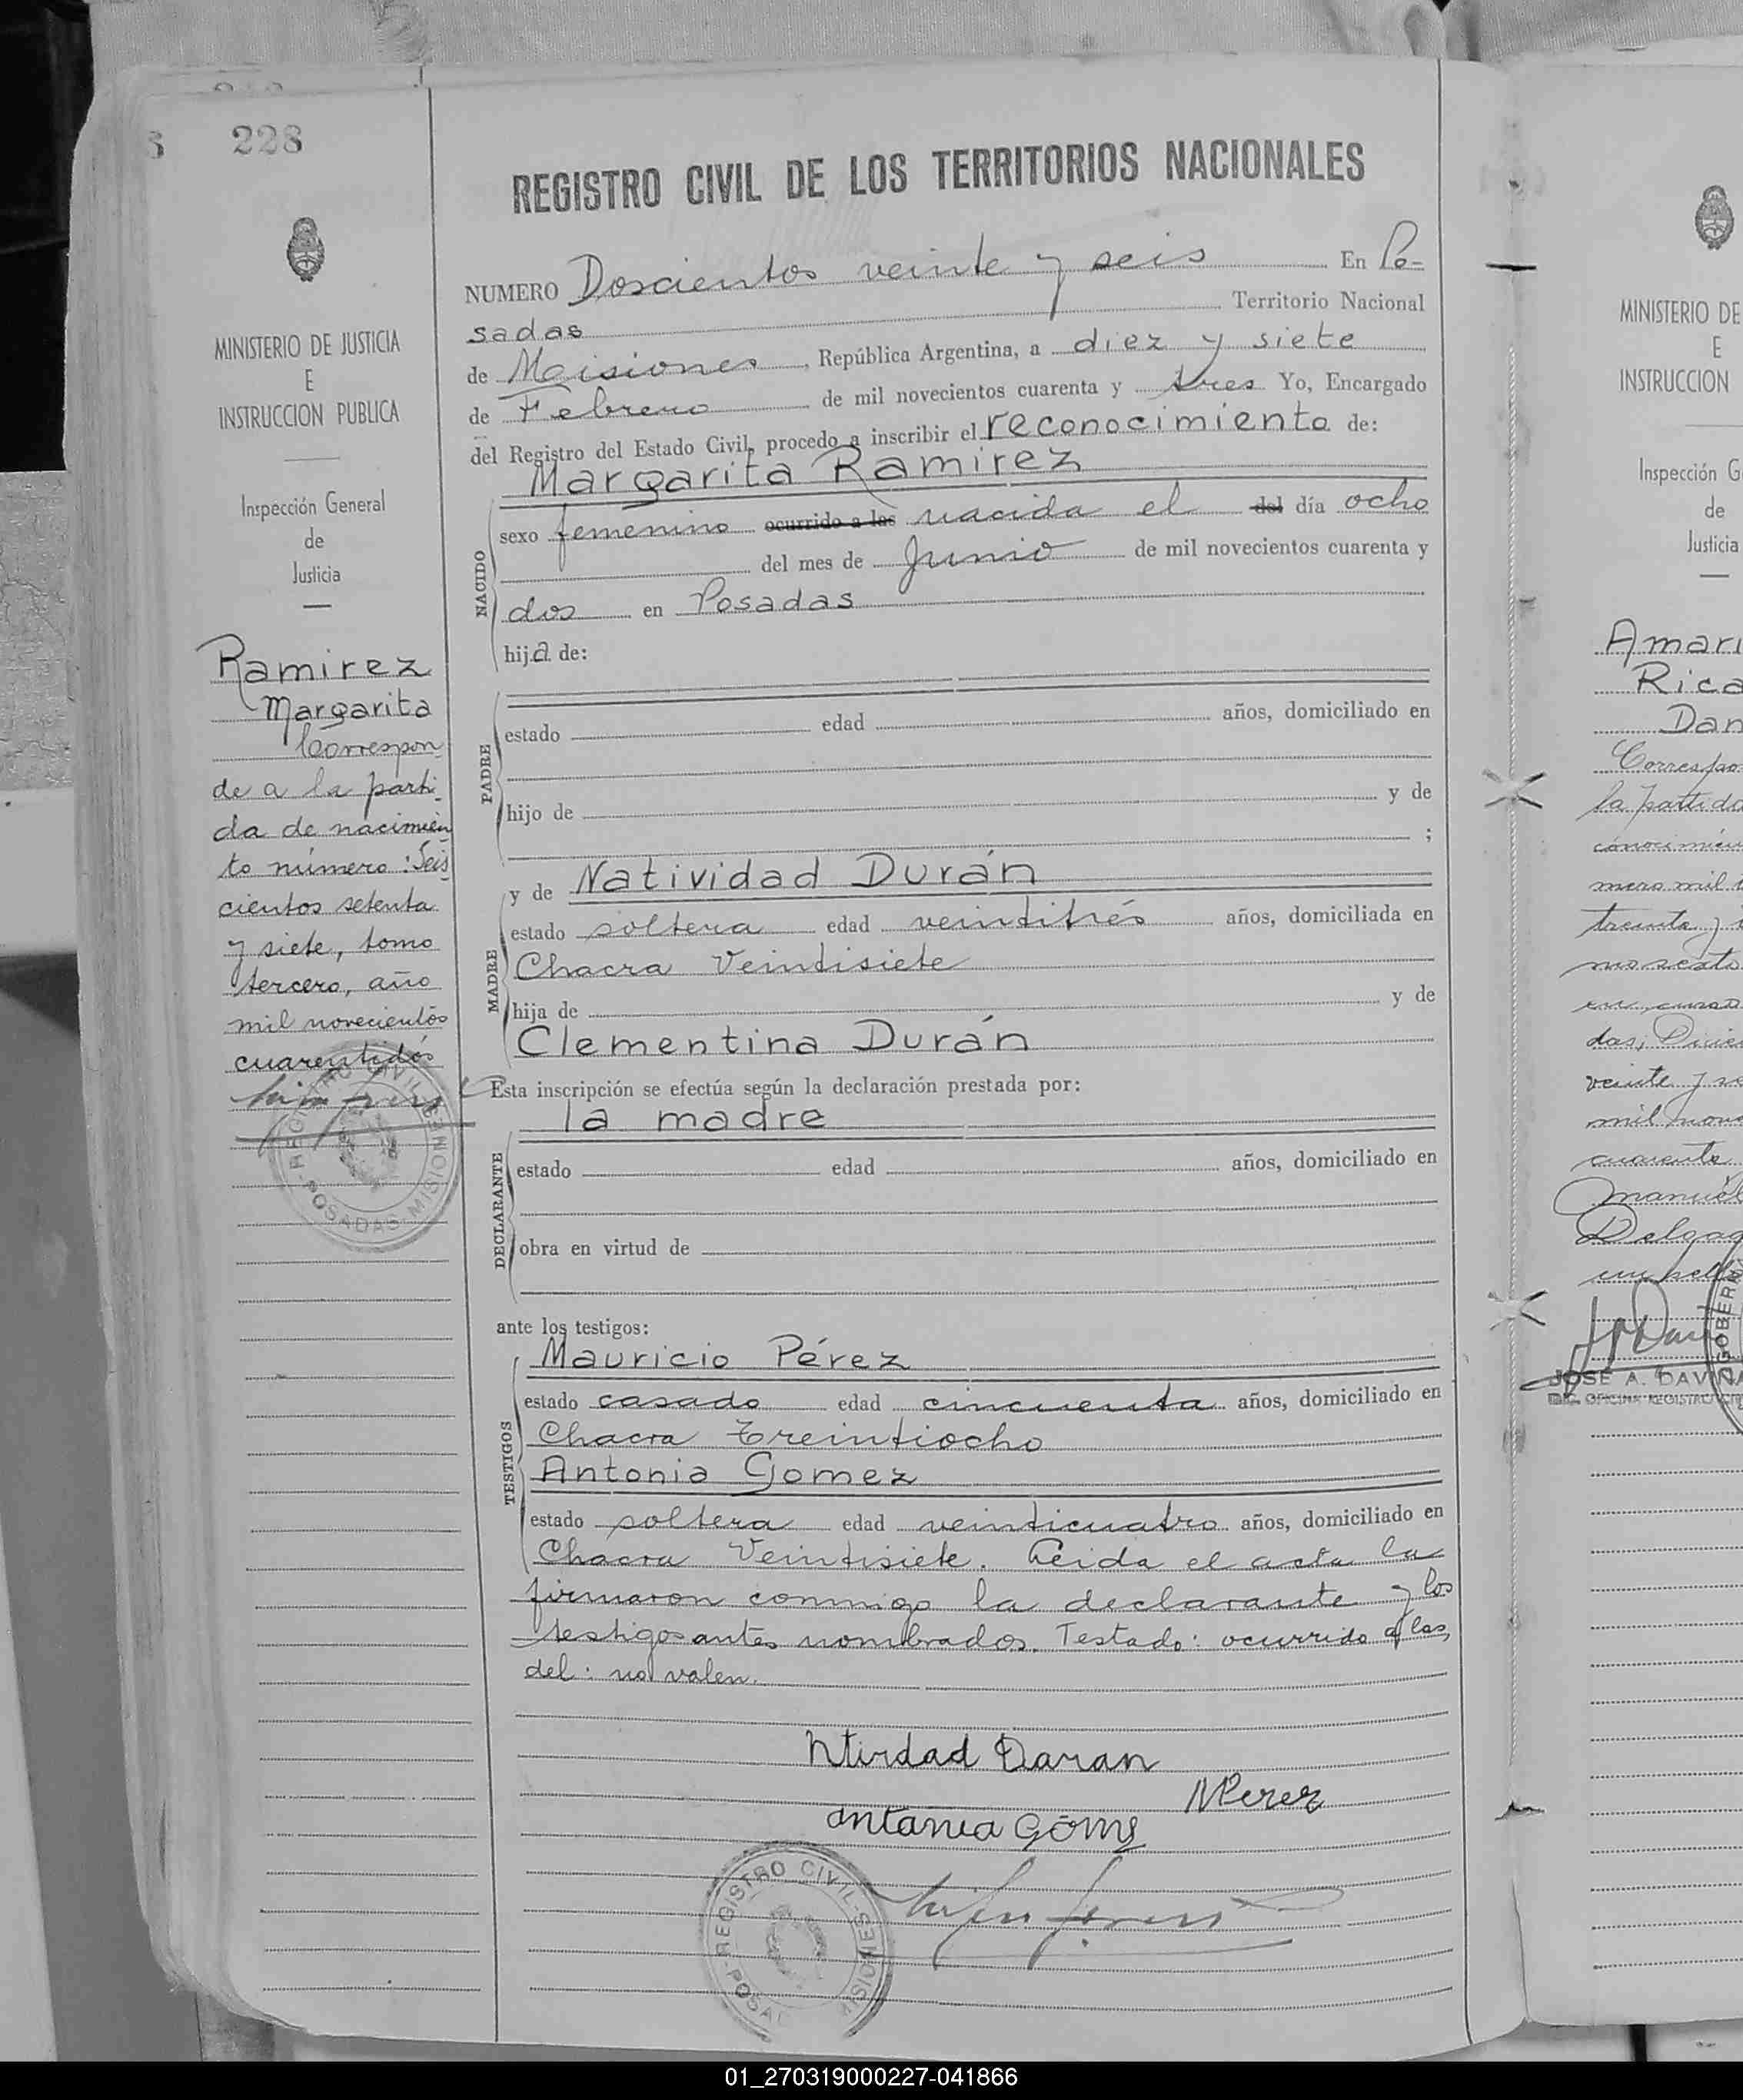 228
MINISTERIO DE JUSTICIA
E
INSTRUCCION PUBLICA
Inspección General
de
Justicia
Ramirez
Margarita
Correspon
de a la parti
da de nacimien
to número: Seis
cientos setenta
y siete, tomo
tercero, año
mil novecientos
cuarentidós
REGISTRO CIVIL
POSADAS-MISIONES
REGISTRO CIVIL DE LOS TERRITORIOS NACIONALES
NUMERO Doscientos veinte y seis En Po-
sadas Territorio Nacional
de Misiones, República Argentina, a diez y siete
de Febrero de mil novecientos cuarenta y tres Yo, Encargado
del Registro del Estado Civil, procedo a inscribir el reconocimiento de:
Margarita Ramirez
NACIDO
sexo femenino ocurrido a las nacida el del día ocho
del mes de Junio de mil novecientos cuarenta y
dos en Posadas
hija de:
PADRE
estado edad años, domiciliado en
hijo de y de
;
MADRE
y de Natividad Durán
estado soltera edad veintitrés años, domiciliada en
Chacra Veintisiete
hija de y de
Clementina Durán
Esta inscripción se efectúa según la declaración prestada por:
la madre
DECLARANTE
estado edad años, domiciliado en
obra en virtud de
ante los testigos:
TESTIGOS
Mauricio Pérez
estado casado edad cincuenta años, domiciliado en
Chacra Treintiocho
Antonia Gomez
estado soltera edad veinticuatro años, domiciliado en
Chacra Veintisiete. Leida el acta la
firmaron conmigo la declarante y los
testigos antes nombrados. Testado: ocurrido a las,
del: no valen.
Ntirdad Daran
MPerez
antania Gómz
REGISTRO CIVIL
MINISTERIO DE
E
INSTRUCCION
Inspección G
de
Justicia
Amari
Rica
Dan
la partida
mero mil
veinte y
mil nove
cuarenta
Manuel
Delgad
un sello
JOSE A. DAVIÑA